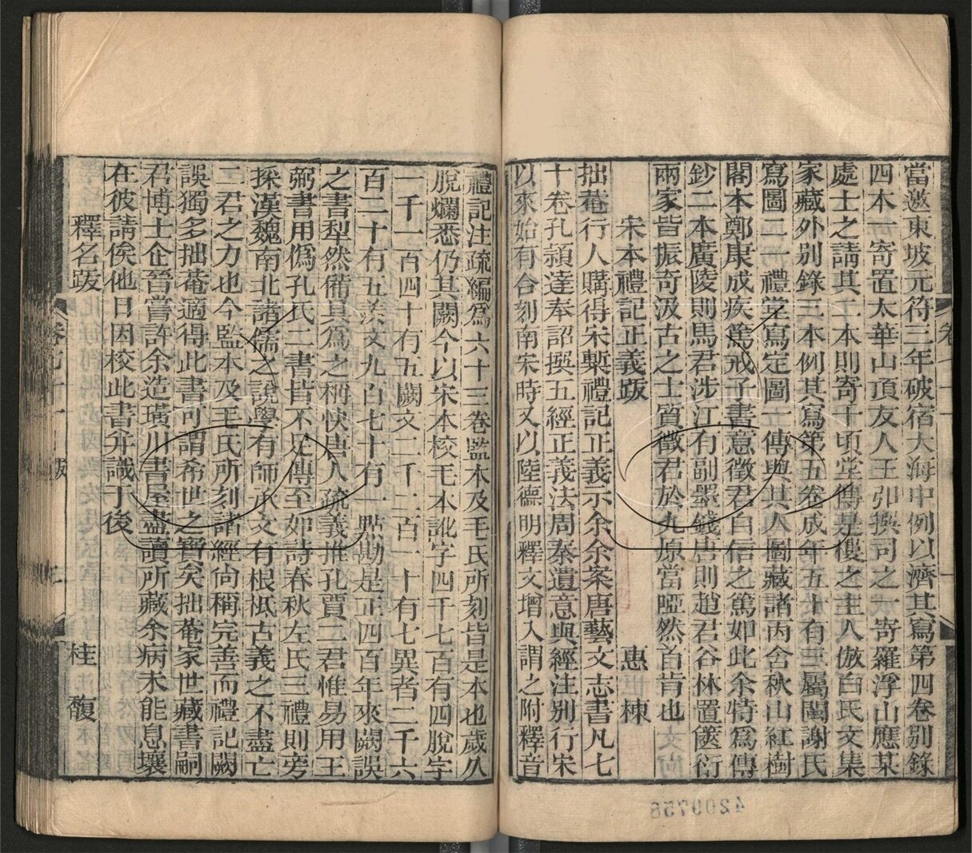 當邀東坡元符三年破宿大海中例以濟其寫第四卷別錄
四本一寄置太華山頂友人王弘撰司之一寄羅浮山應某
處士之請其二本則寄千頃堂傳是樓之主人倣白氏文集
家藏外別錄三本例其寫第五卷成年五十有三屬閩謝氏
寫圖二一禮堂寫定圖一傳與其人圖藏諸丙舍秋山紅樹
閣本鄭康成疾篤戒子書意徵君自信之篤如此余特為傳
鈔二本廣陵則馬君涉江有副墨錢唐則趙君谷林置篋衍
兩家皆振奇汲古之士質徵君於九原當啞然首肯也
宋本禮記正義跋 惠棟
拙菴行人購得宋槧禮記正義示余余案唐藝文志書凡七
十卷孔穎達奉詔撰五經正義法周秦遺意與經注別行宋
以來始有合刻南宋時又以陸德明釋文增入謂之附釋音
禮記注疏編為六十三卷監本及毛氏所刻皆是本也歲久
脫爛悉仍其闕今以宋本校毛本訛字四千七百有四脫字
一千一百四十有五闕文二千二百一十有七異者二千六
百二十有五羨文九百七十有一點勘是正四百年來闕誤
之書犁然備具為之稱快唐人疏義推孔賈二君惟易用王
弼書用偽孔氏二書皆不足傳至如詩春秋左氏三禮則旁
採漢魏南北諸儒之說學有師承文有根柢古義之不盡亡
二君之力也今監本及毛氏所刻諸經尚稱完善而禮記闕
誤獨多拙菴適得此書可謂希世之寶矣拙菴家世藏書嗣
君博士企晉嘗許余造璜川書屋盡讀所藏余病未能息壤
在彼請俟他日因校此書并識于後
釋名跋 桂馥
4209756